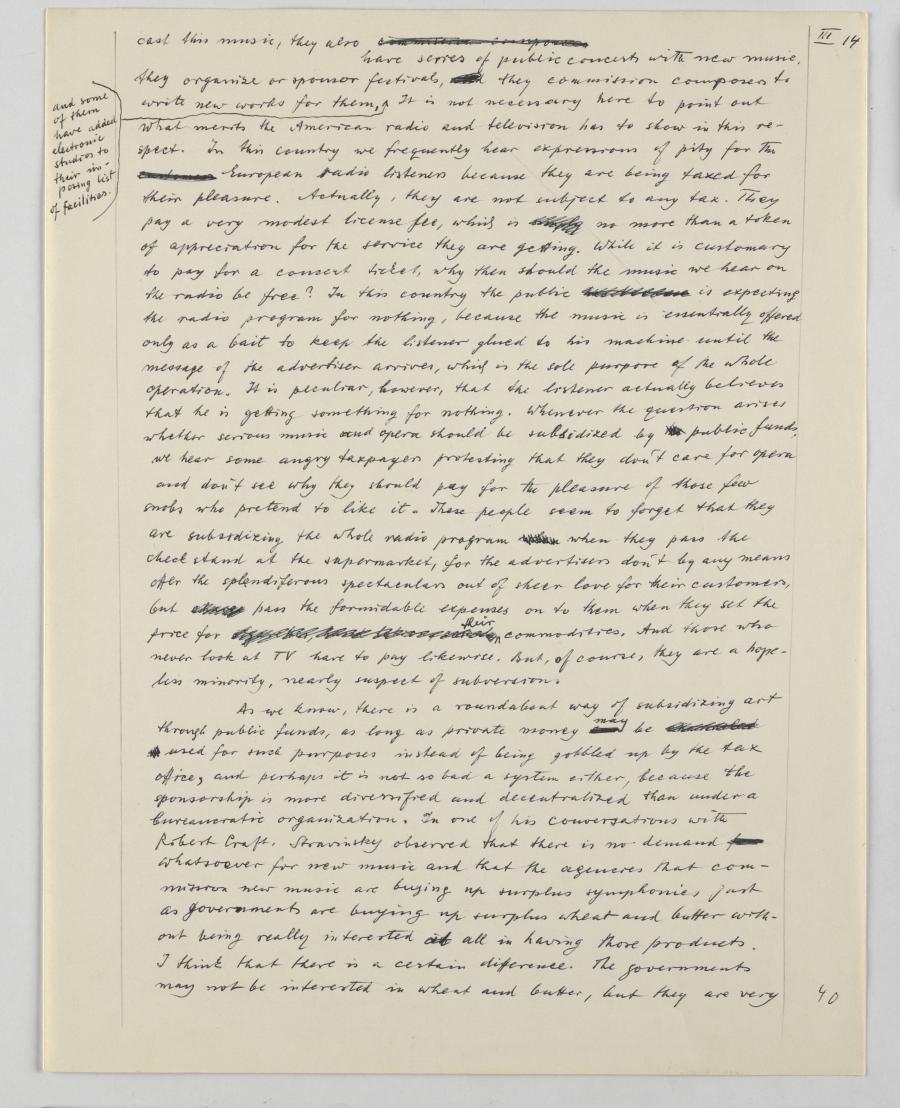 III 14
cast this music, they also
have series of public concerts with new music.
they organize or sponsor festivals, they commission composers to
write new works for them, It is not necessary here to point out
and some
of them
have added
electronic
studios to
their im-
posing list
of facilities.
what merits the American radio and television has to show in this re-
spect. In this country we frequently hear expressions of pity for the
European radio listeners because they are being taxed for
their pleasure. Actually, they are not subject to any tax. They
pay a very modest license fee, which is no more than a token
of appreciation for the service they are getting. While it is customary
to pay for a concert ticket, why then should the music we hear on
the radio be free? In this country the public is expecting
the radio program for nothing, because the music is essentially offered
only as a bait to keep the listener glued to his machine until the
message of the advertiser arrives, which is the sole purpose of the whole
operation. It is peculiar, however, that the listener actually believes
that he is getting something for nothing. Whenever the question arises
whether serious music and opera should be subsidized by public funds,
we hear some angry taxpayers protesting that they don't care for opera
and don't see why they should pay for the pleasure of those few
snobs who pretend to like it. These people seem to forget that they
are subsidizing the whole radio program when they pass the
check stand at the supermarket, for the advertisers don't by any means
offer the splendiferous spectaculars out of sheer love for their customers,
but pass the formidable expenses on to them when they set the
price for their commodities. And those who
never look at TV have to pay likewise. But, of course, they are a hope-
less minority, nearly suspect of subversion.
As we know, there is a roundabout way of subsidizing art
through public funds, as long as private money may be
used for such purposes instead of being gobbled up by the tax
office, and perhaps it is not so bad a system either, because the
sponsorship is more diversified and decentralized than under a
bureaucratic organization. In one of his conversations with
Robert Craft, Stravinsky observed that there is no demand
whatsoever for new music and that the agencies that com-
mission new music are buying up surplus symphonies, just
as governments are buying up surplus wheat and butter with-
out being really interested at all in having those products.
I think that there is a certain difference. The governments
may not be interested in wheat and butter, but they are very
40